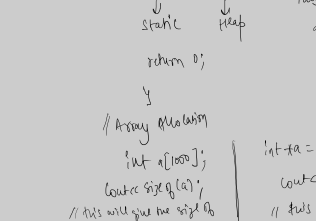 Static    Heap
return 0;
}
// Array Allocation
int a[1000];
cout<< size of (a);
// this will give the size of
int *a =
cout<
// this